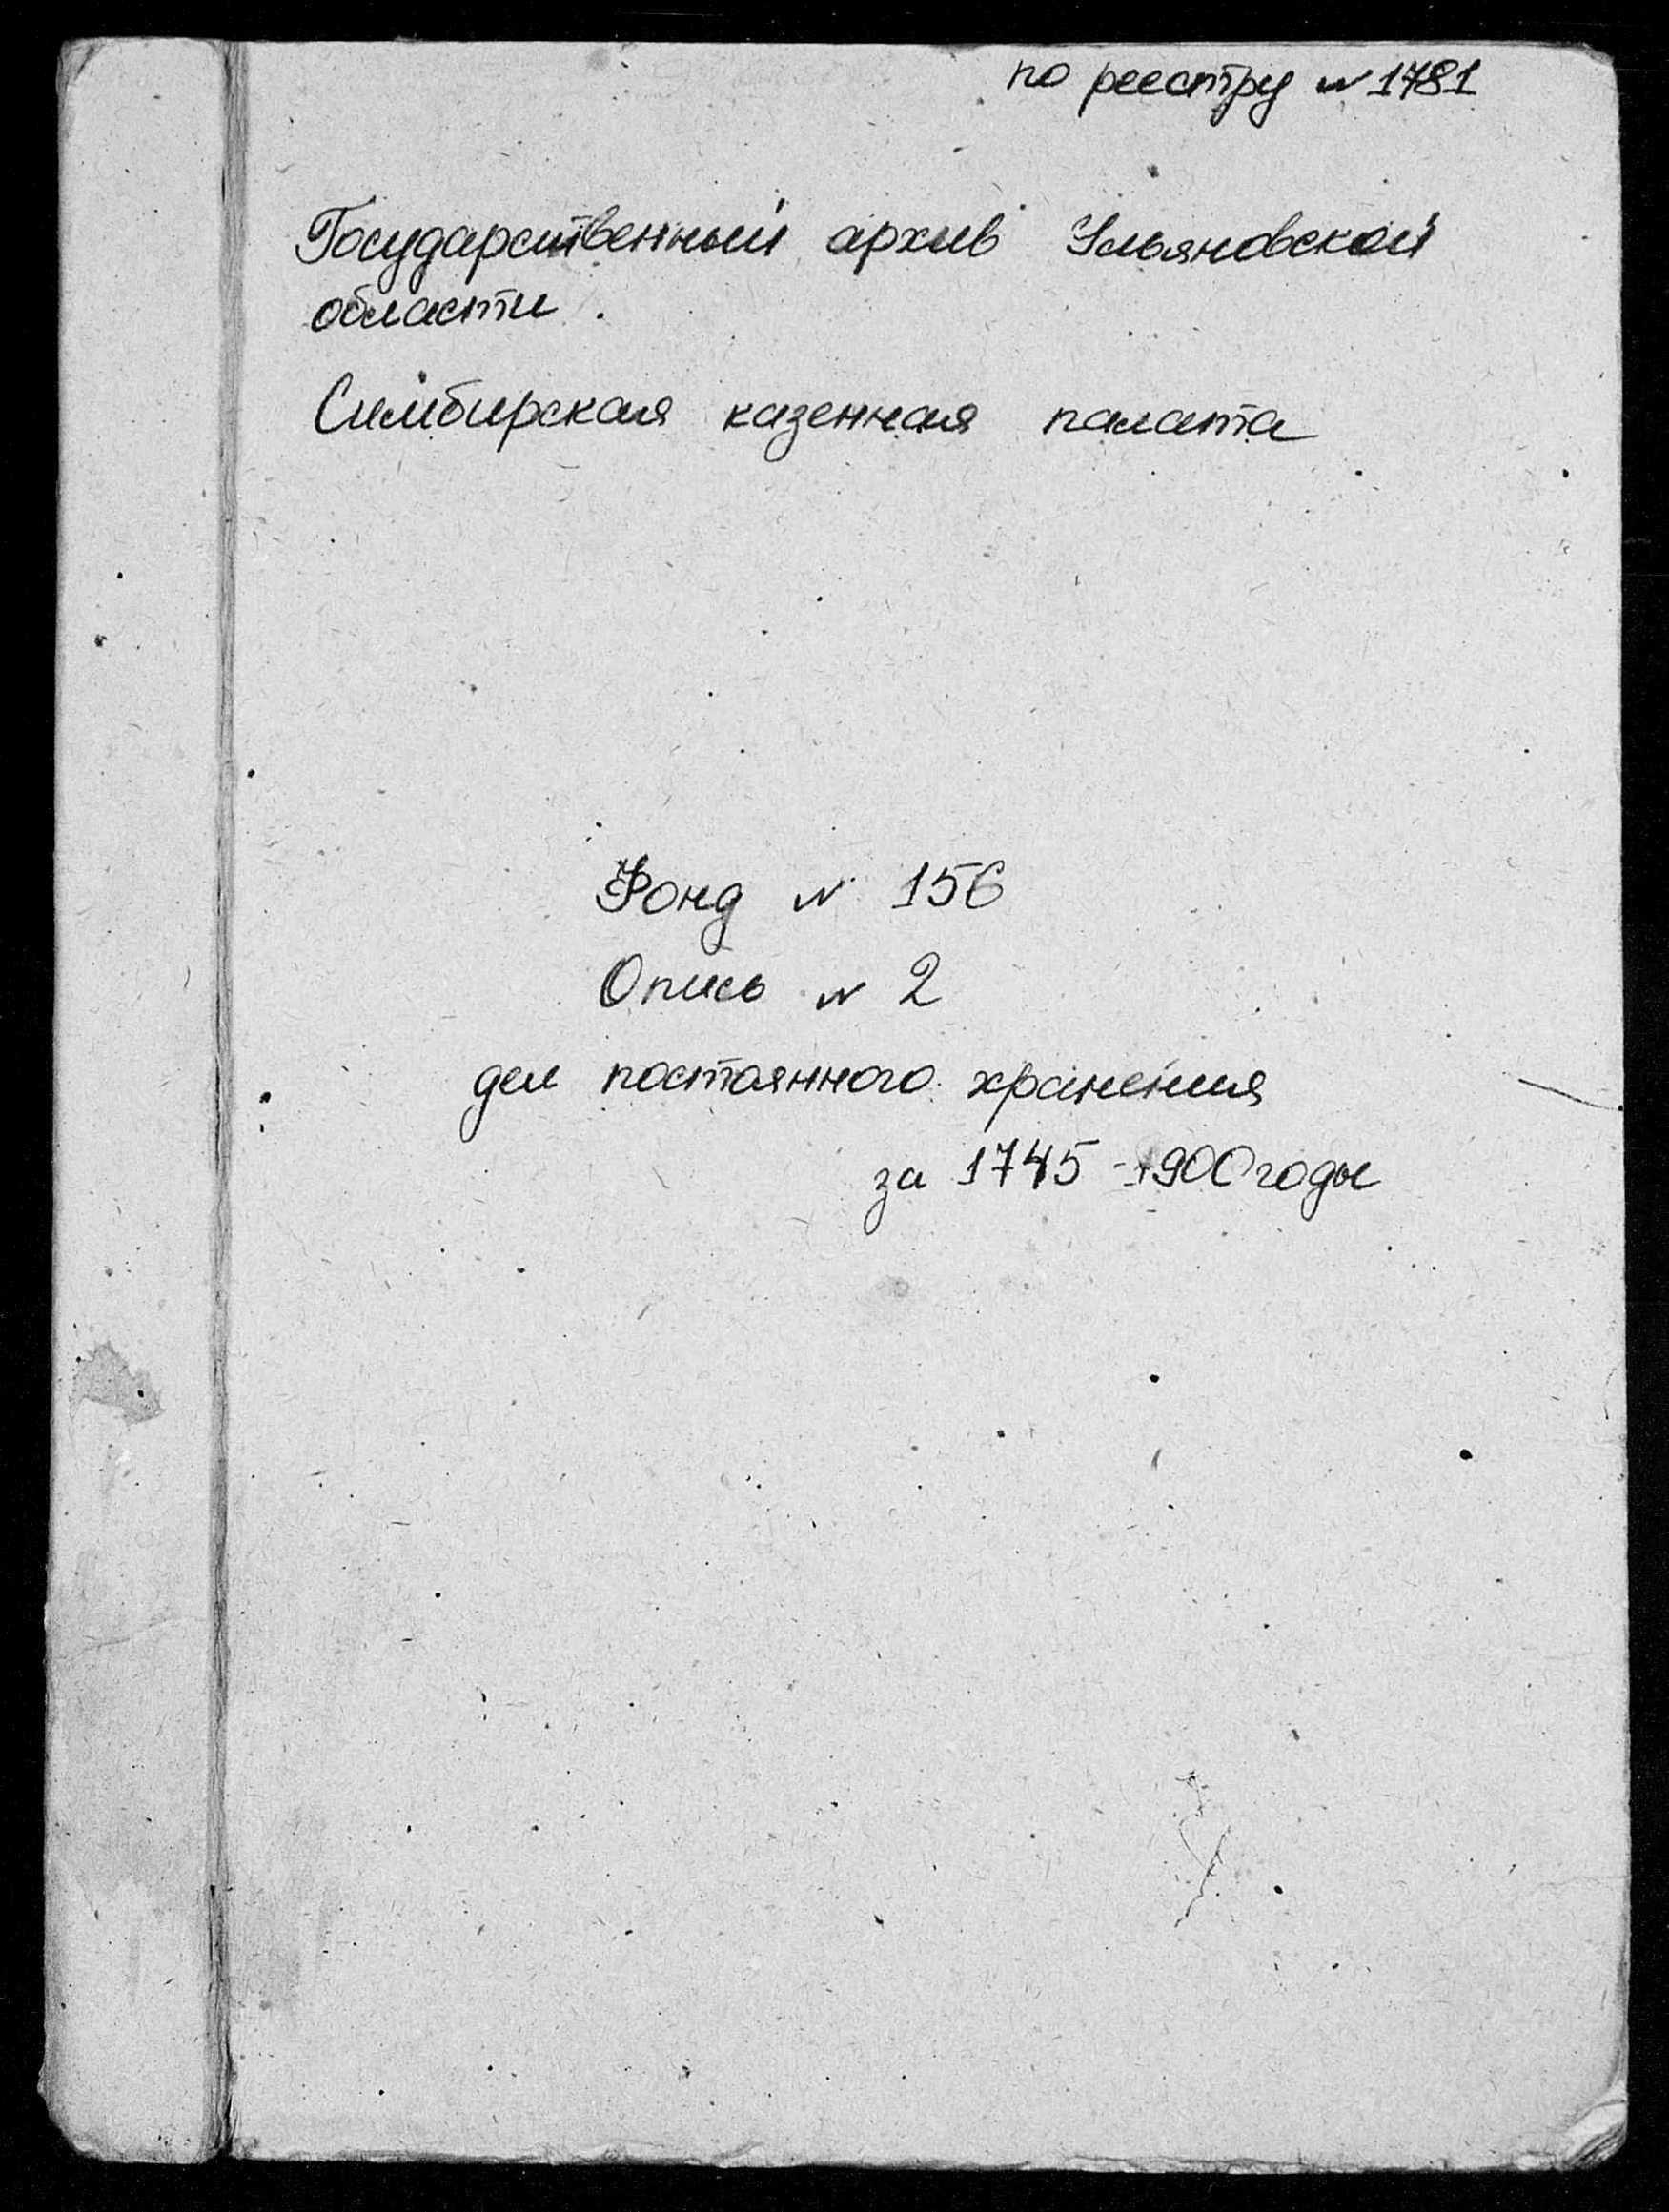 по реестру № 1781
Государственный архив Ульяновской
области.
Симбирская казенная палата
Фонд № 156
Опись № 2
дел постоянного хранения
за 1745-1900 годы